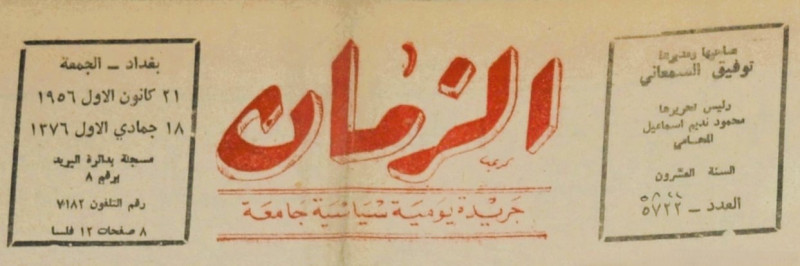 صاحبها ومديرها
توفيق السمعاني
رئيس تحريرها
محمود نديم اسماعيل
المحامي
السنة العشرون
٥٨٤٤
العدد ــ ٥٧٢٢
الزمان
جريدة يومية سياسية جامعة
بغداد ــ الجمعة
٢١ كانون الاول ١٩٥٦
١٨ جمادي الاول ١٣٧٦
مسجلة بدائرة البريد
برقم ٨
رقم التلفون ٧١٨٢
٨ صفحات ١٢ فلسا